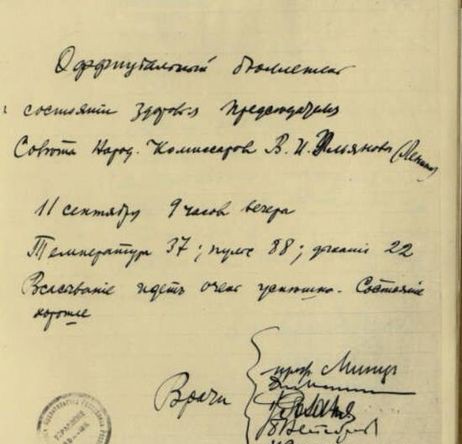 Оффицiальный бюллетень
состоянiи здоровья Председателя
Совѣта Народ. Комиссаров В. И. Ульянова (Ленина)
11 сентября 9 часов вечера
Температура 37; пульс 88; дыханiе 22
Всасыванiе идетъ очень успѣшно. Состоянiе
хорошее
Врачи
проф Минцъ